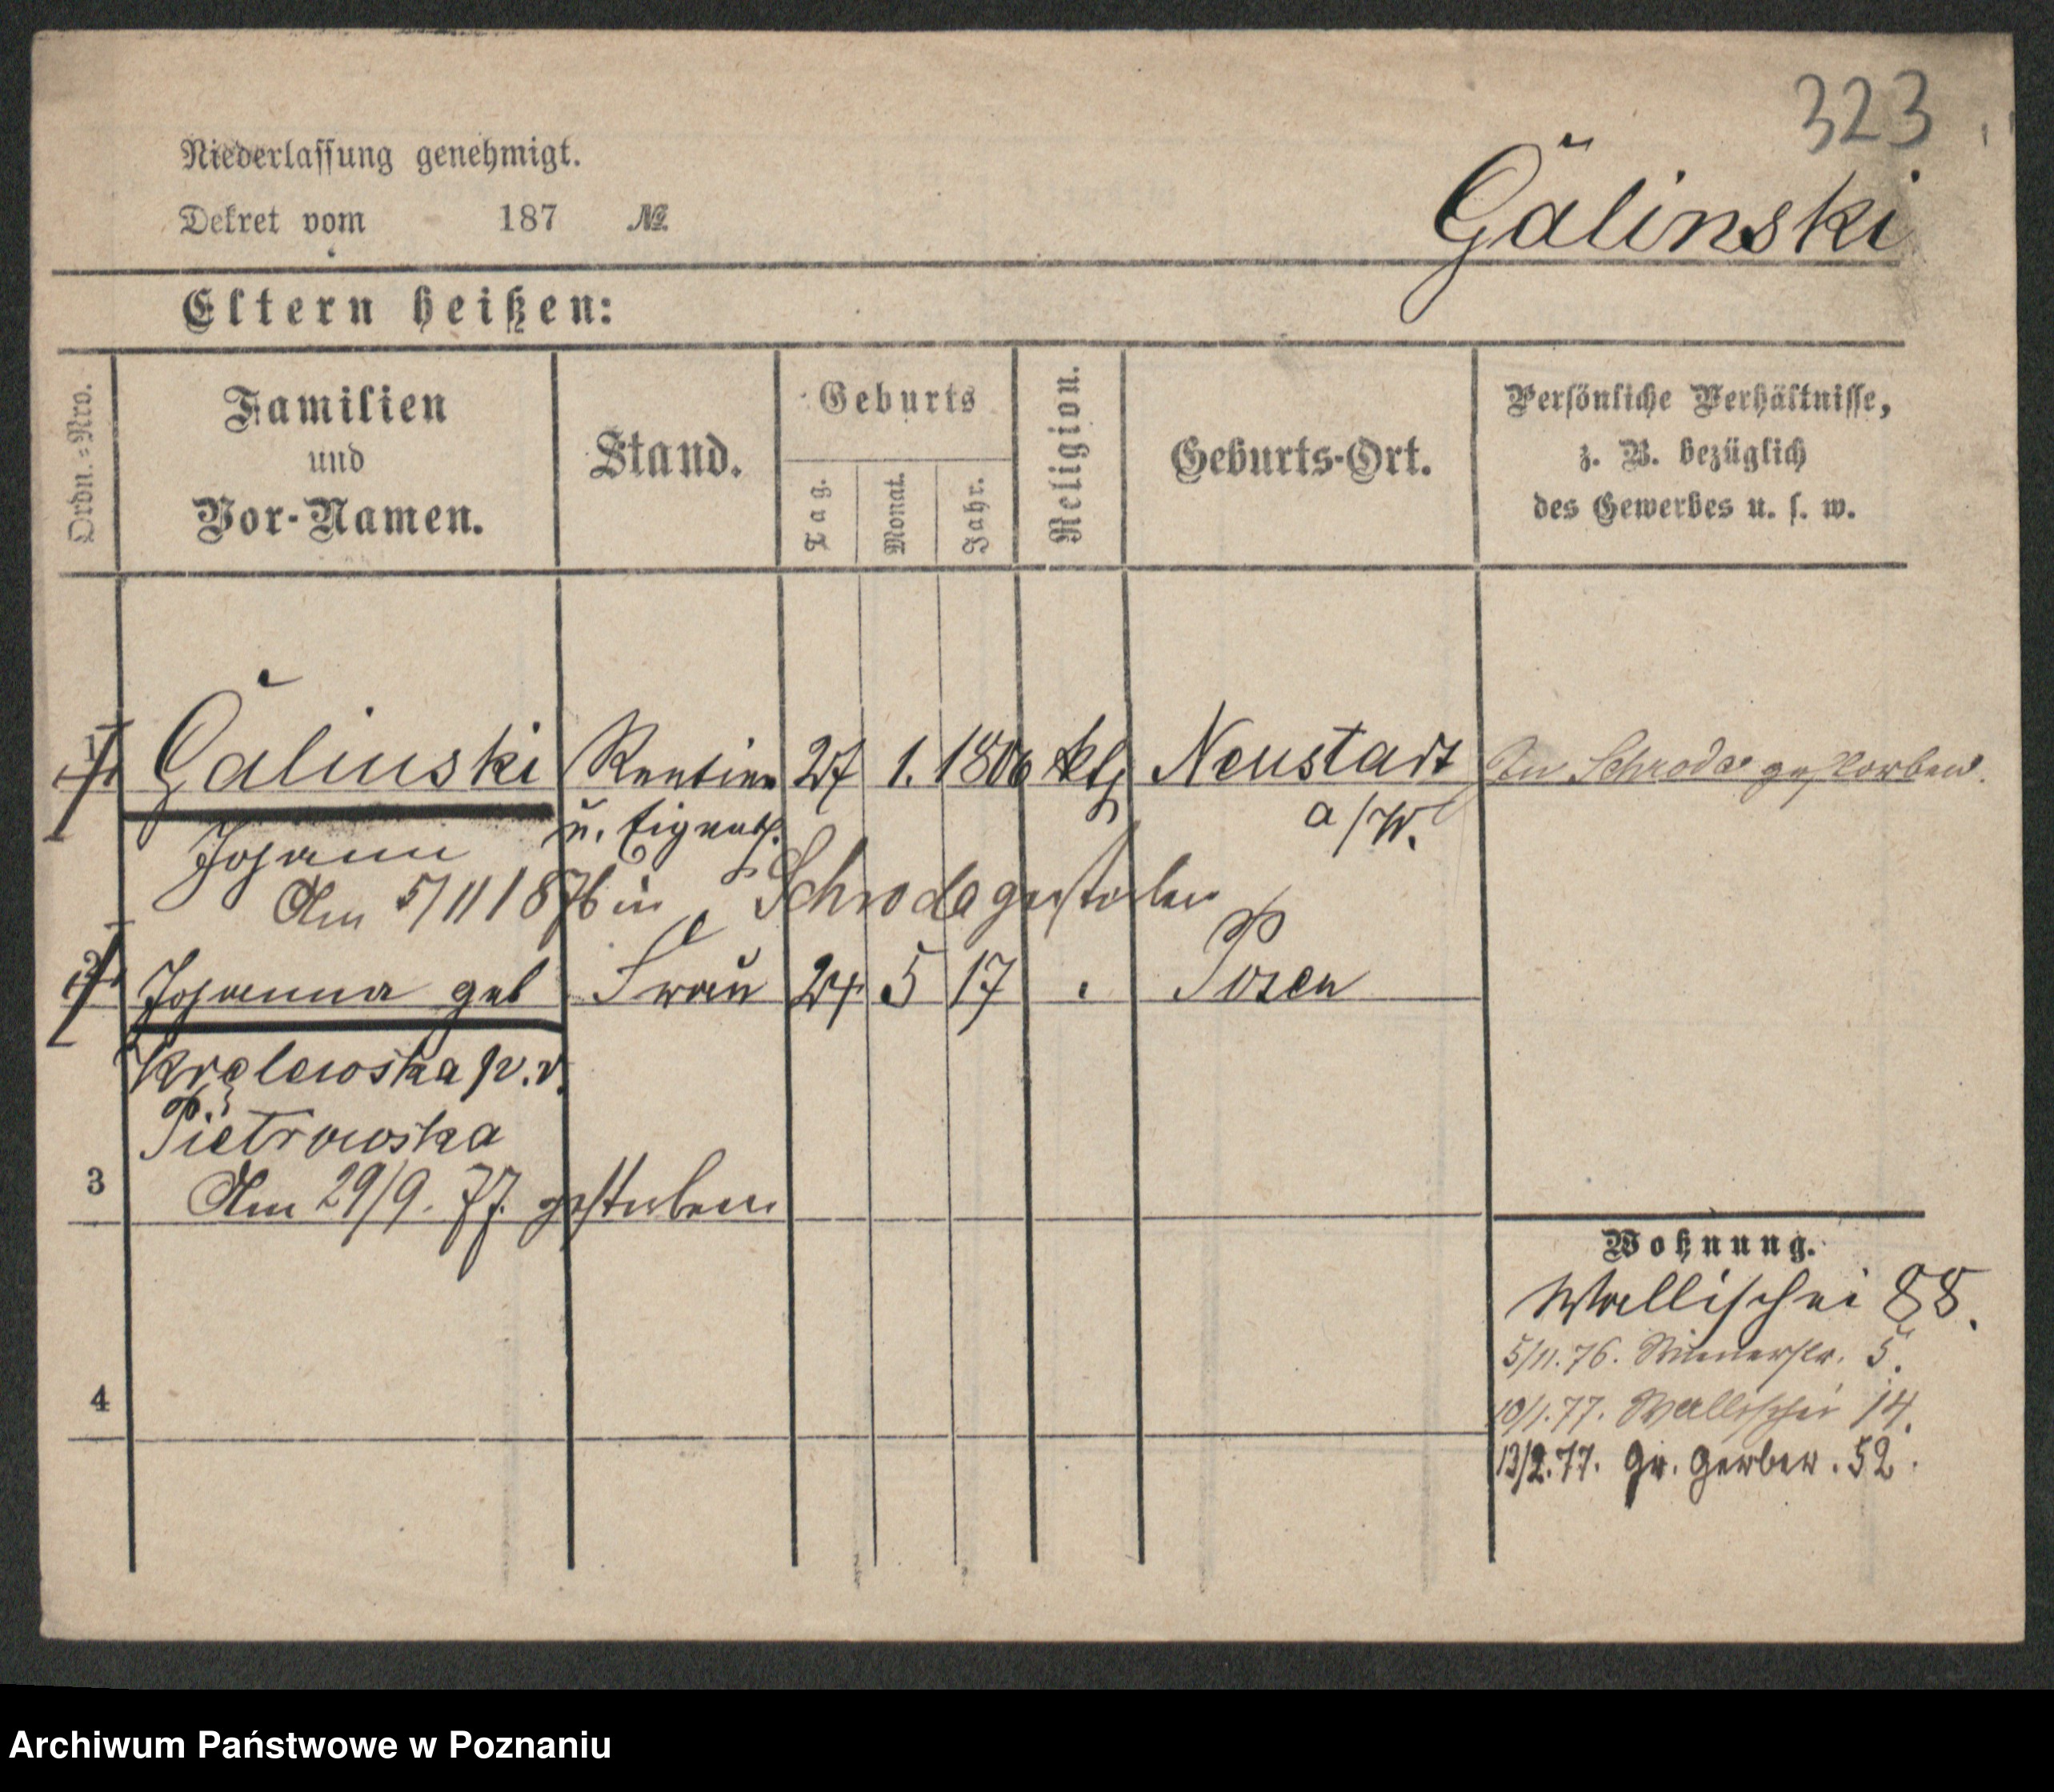 323
Niederlassung genehmigt.
Dekret vom 187 №
Gälinski
Eltern heißen:
Ordn.-Nro.
Familien
und
Vor-Namen.
Stand.
Geburts
Tag.
Monat.
Jahr.
Religion.
Geburts-Ort.
Persönliche Verhältnisse,
z. B. bezüglich
des Gewerbes u. s. w.
1 Gälinski Rentier 27 1. 1806 kth Neustadt In Schroda gestorben.
Johann u. Eigenth. a/W.
Am 5/11 1876 in Schroda gestorben
2 Johanna geb Frau 24 5 17 Posen
Krolewska p. v.
Pietrowska
3 Am 29/9. 77. gestorben
Wohnung.
Wallischei 88.
5/11. 76. 5.
4 10/1. 77. Wallischei 14.
13/2. 77. Gr. Gerber. 52.
Archiwum Państwowe w Poznaniu